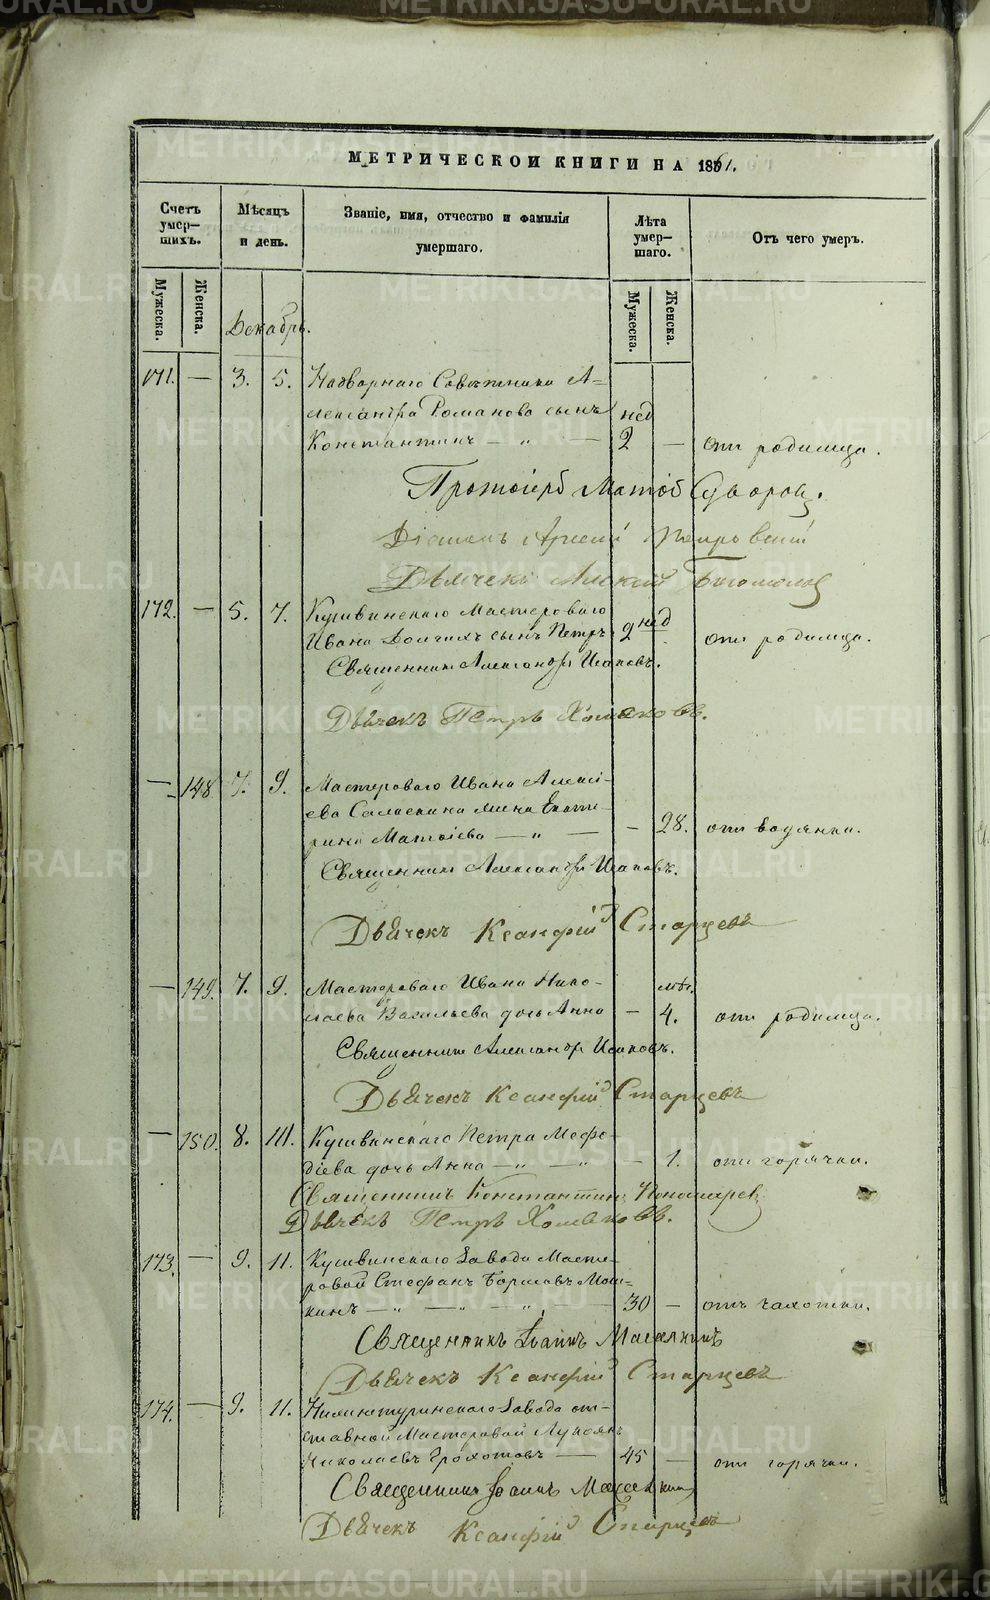 METRIKI.GASO-URAL.RU
МЕТРИЧЕСКОЙ КНИГИ НА 1861.
Счетъ умер-шихъ.
Мужеска.
Женска.
Мѣсяцъ и день.
Званіе, имя, отчество и фамилія умершаго.
Лѣта умер-шаго.
Мужеска.
Женска.
Отъ чего умеръ.
Декабрь.
171. — 3. 5. Надворнаго Совѣтника А-
лександра Романова сынъ нед
Константинъ — „ — 2 — отъ родимца.
Протоіерей Матѳей Суворовъ.
Діаконъ Петровскій
Дьячекъ Богомоловъ
172. — 5. 7. Кушвинскаго Мастероваго
Ивана сынъ Петръ 2 нед отъ родимца.
Священникъ Александръ Исаковъ.
Дьячекъ Петръ Хомяковъ.
— 148 7. 9. Мастероваго Ивана Алексѣ-
ева жена Екате-
рина Матѳіева — „ — — 28. отъ водянки.
Священникъ Александръ Исаковъ.
Дьячекъ Ксанфій Старцевъ
— 149. 7. 9. Мастероваго Ивана Нико-
лаева Васильева дочь Анна — мѣс. 4. отъ родимца.
Священникъ Александръ Исаковъ.
Дьячекъ Ксанфій Старцевъ
— 150. 8. Кушвинскаго Петра Меѳо-
діева дочь Анна — „ — „ — 1. отъ горячки.
Священникъ Константинъ Пономаревъ
Дьячекъ Петръ Хомяковъ.
173. — 9. 11. Кушвинскаго Завода Масте-
ровой Стефанъ Мош-
кинъ — „ — „ — „ — 30 — отъ чахотки.
Священникъ Іоаннъ
Дьячекъ Ксанфій Старцевъ
174. — 9. 11. Нижнетуринскаго Завода от-
ставной Мастеровой Лукоянъ
Николаевъ Грохотовъ — 45 — отъ горячки.
Священникъ Іоаннъ
Дьячекъ Ксанфій Старцевъ